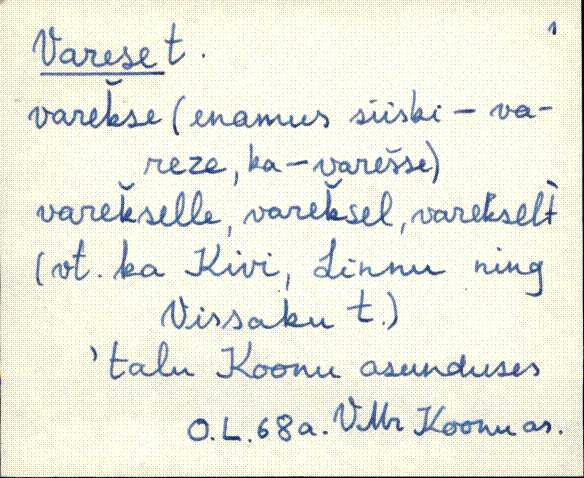 Varese t.
varekse (enamus siiski - va-
reze, ka - varesse)
varekselle, vareksel, varekselt
(vt. ka Kivi, Linnu ning
Vissaku t.)
'talu Koonu asunduses
O.L. 68 a. VMr Koonu as.